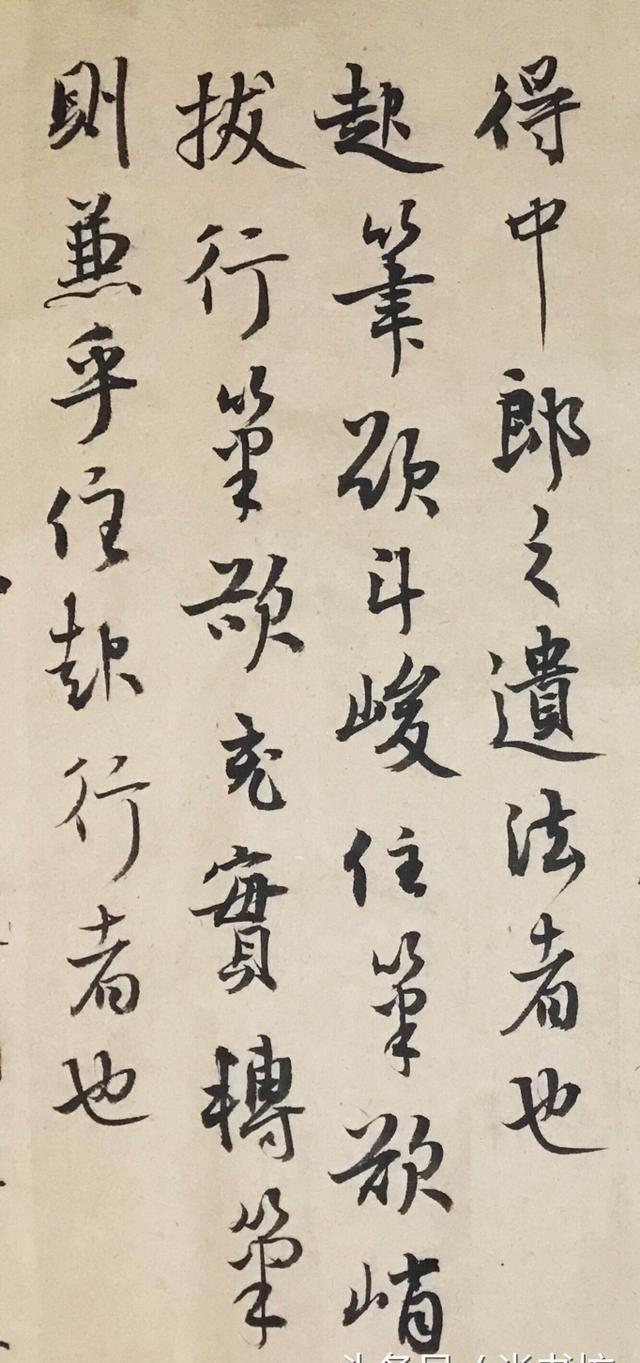 得中郎之遺法者也
起筆欲斗峻住筆欲峭
拔行筆欲充實轉筆
則兼乎住起行者也